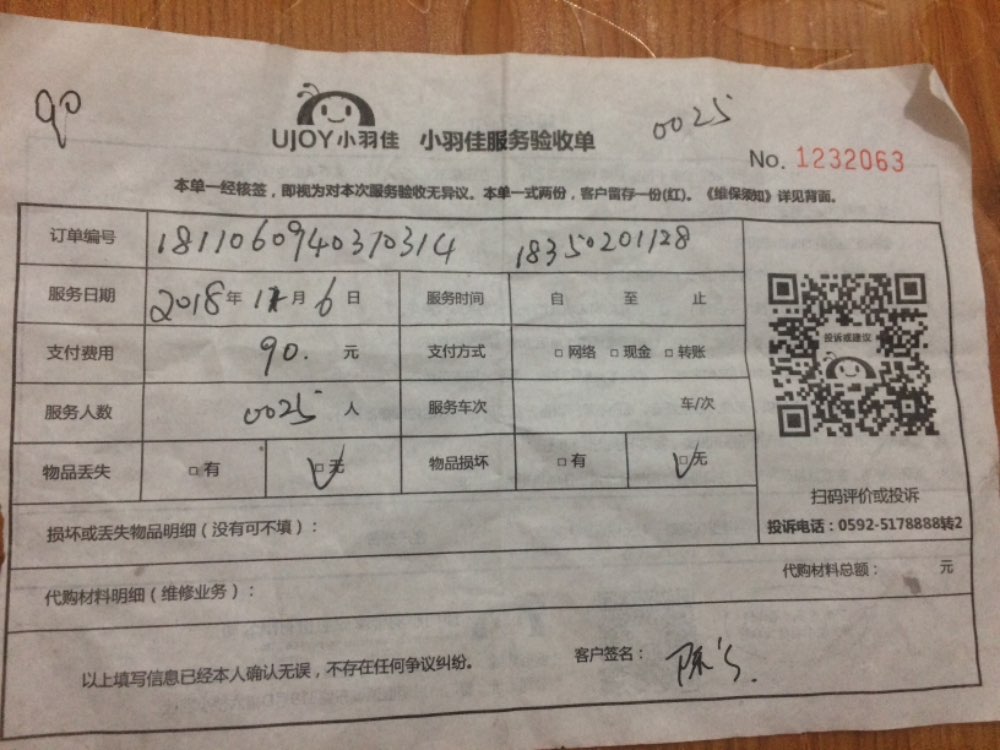 90
0025
UJOY小羽佳 小羽佳服务验收单
No. 1232063
本单一经核签，即视为对本次服务验收无异议。本单一式两份，客户留存一份(红)。《维保须知》详见背面。
订单编号 1811060940370314 18350201128
服务日期 2018年 11月 6日 服务时间 自 至 止
支付费用 90. 元 支付方式 □网络 □现金 □转账
投诉或建议
服务人数 0025 人 服务车次 车/次
物品丢失 □有 □无 物品损坏 □有 □无
扫码评价或投诉
投诉电话：0592-5178888转2
损坏或丢失物品明细（没有可不填）：
代购材料明细（维修业务）： 代购材料总额： 元
以上填写信息已经本人确认无误，不存在任何争议纠纷。 客户签名：